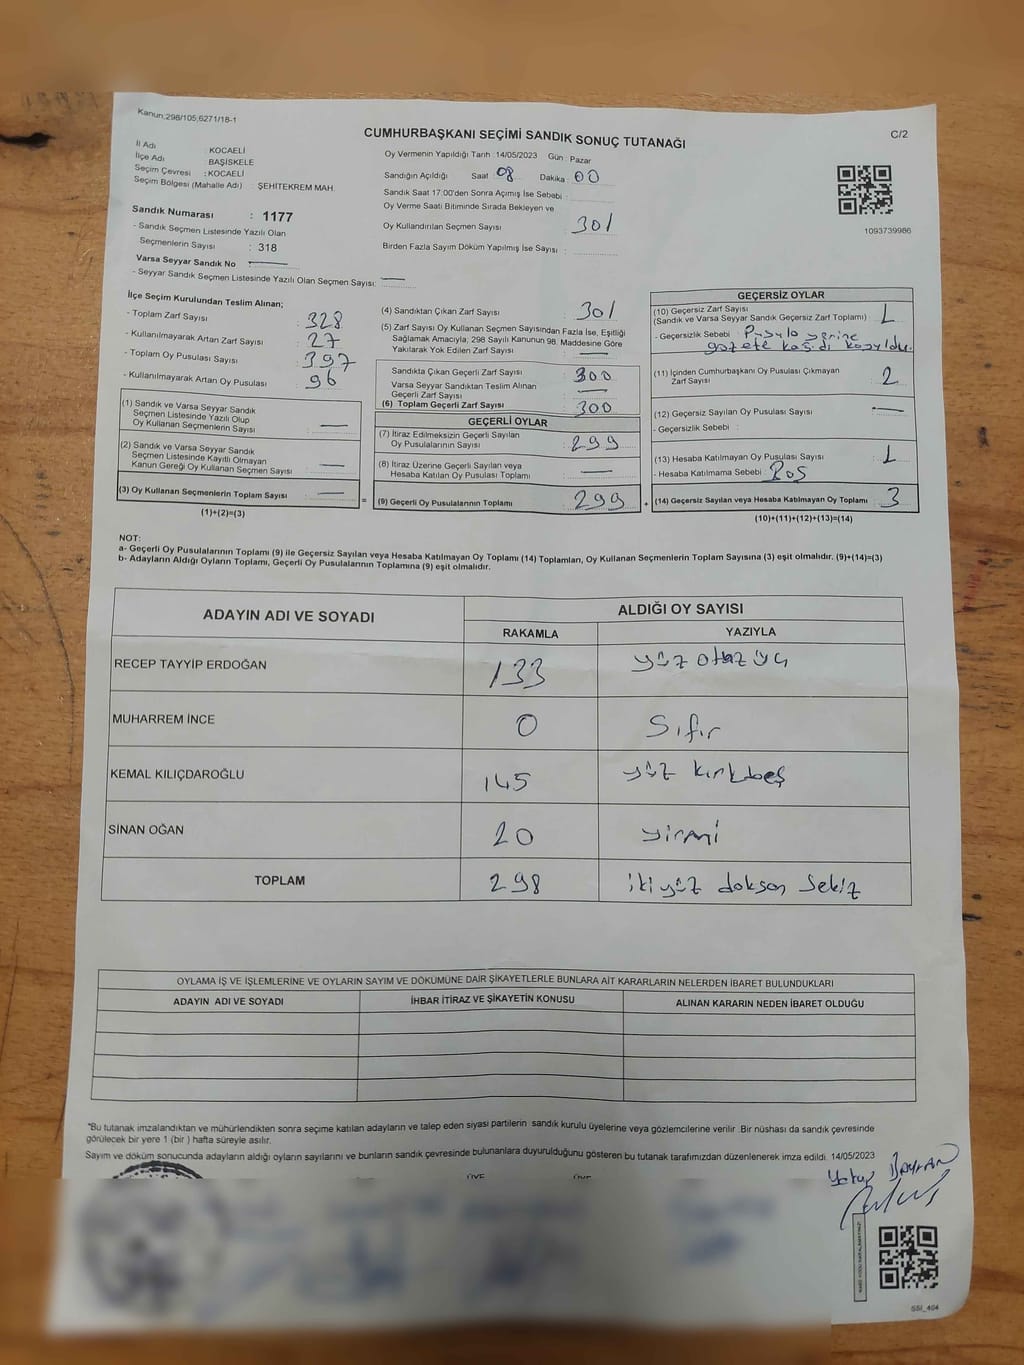 Kanun:298/105,6271/18-1
CUMHURBAŞKANI SEÇİMİ SANDIK SONUÇ TUTANAĞI
C/2
İl Adı : KOCAELİ
İlçe Adı : BAŞİSKELE
Seçim Çevresi : KOCAELİ
Seçim Bölgesi (Mahalle Adı) : ŞEHİTEKREM MAH.
Sandık Numarası : 1177
- Sandık Seçmen Listesinde Yazılı Olan
Seçmenlerin Sayısı : 318
Varsa Seyyar Sandık No —
- Seyyar Sandık Seçmen Listesinde Yazılı Olan Seçmen Sayısı: —
Oy Vermenin Yapıldığı Tarih :14/05/2023 Gün : Pazar
Sandığın Açıldığı Saat 08 Dakika 00
Sandık Saat 17:00'den Sonra Açmış İse Sebebi :
Oy Verme Saati Bitiminde Sırada Bekleyen ve
Oy Kullandırılan Seçmen Sayısı : 301
Birden Fazla Sayım Döküm Yapılmış İse Sayısı :
1093739986
İlçe Seçim Kurulundan Teslim Alınan;
- Toplam Zarf Sayısı : 328
- Kullanılmayarak Artan Zarf Sayısı : 27
- Toplam Oy Pusulası Sayısı : 397
- Kullanılmayarak Artan Oy Pusulası : 96
(1) Sandık ve Varsa Seyyar Sandık
Seçmen Listesinde Yazılı Olup
Oy Kullanan Seçmenlerin Sayısı : —
(2) Sandık ve Varsa Seyyar Sandık
Seçmen Listesinde Kayıtlı Olmayan
Kanun Gereği Oy Kullanan Seçmen Sayısı : —
(3) Oy Kullanan Seçmenlerin Toplam Sayısı : —
(1)+(2)=(3)
=
(4) Sandıktan Çıkan Zarf Sayısı : 301
(5) Zarf Sayısı Oy Kullanan Seçmen Sayısından Fazla İse, Eşitliği
Sağlamak Amacıyla, 298 Sayılı Kanunun 98. Maddesine Göre
Yakılarak Yok Edilen Zarf Sayısı : —
Sandıkta Çıkan Geçerli Zarf Sayısı : 300
Varsa Seyyar Sandıktan Teslim Alınan
Geçerli Zarf Sayısı : —
(6) Toplam Geçerli Zarf Sayısı : 300
GEÇERLİ OYLAR
(7) İtiraz Edilmeksizin Geçerli Sayılan
Oy Pusulalarının Sayısı : 299
(8) İtiraz Üzerine Geçerli Sayılan veya
Hesaba Katılan Oy Pusulası Toplamı : —
(9) Geçerli Oy Pusulalarının Toplamı : 299
+
GEÇERSİZ OYLAR
(10) Geçersiz Zarf Sayısı
(Sandık ve Varsa Seyyar Sandık Geçersiz Zarf Toplamı) : 1
- Geçersizlik Sebebi : Pusula yerine
gazete kağıdı koyuldu.
(11) İçinden Cumhurbaşkanı Oy Pusulası Çıkmayan
Zarf Sayısı : 2
(12) Geçersiz Sayılan Oy Pusulası Sayısı : —
- Geçersizlik Sebebi :
(13) Hesaba Katılmayan Oy Pusulası Sayısı : 1
- Hesaba Katılmama Sebebi : Boş
(14) Geçersiz Sayılan veya Hesaba Katılmayan Oy Toplamı : 3
(10)+(11)+(12)+(13)=(14)
NOT:
a- Geçerli Oy Pusulalarının Toplamı (9) ile Geçersiz Sayılan veya Hesaba Katılmayan Oy Toplamı (14) Toplamları, Oy Kullanan Seçmenlerin Toplam Sayısına (3) eşit olmalıdır. (9)+(14)=(3)
b- Adayların Aldığı Oyların Toplamı, Geçerli Oy Pusulalarının Toplamına (9) eşit olmalıdır.
ADAYIN ADI VE SOYADI ALDIĞI OY SAYISI
RAKAMLA YAZIYLA
RECEP TAYYİP ERDOĞAN 133 yüz otuz üç
MUHARREM İNCE 0 Sıfır
KEMAL KILIÇDAROĞLU 145 yüz kırkbeş
SİNAN OĞAN 20 yirmi
TOPLAM 298 iki yüz doksan sekiz
OYLAMA İŞ VE İŞLEMLERİNE VE OYLARIN SAYIM VE DÖKÜMÜNE DAİR ŞİKAYETLERLE BUNLARA AİT KARARLARIN NELERDEN İBARET BULUNDUKLARI
ADAYIN ADI VE SOYADI İHBAR İTİRAZ VE ŞİKAYETİN KONUSU ALINAN KARARIN NEDEN İBARET OLDUĞU
"Bu tutanak imzalandıktan ve mühürlendikten sonra seçime katılan adayların ve talep eden siyasi partilerin sandık kurulu üyelerine veya gözlemcilerine verilir. Bir nüshası da sandık çevresinde
görülecek bir yere 1 (bir) hafta süreyle asılır.
Sayım ve döküm sonucunda adayların aldığı oyların sayılarını ve bunların sandık çevresinde bulunanlara duyurulduğunu gösteren bu tutanak tarafımızdan düzenlenerek imza edildi. 14/05/2023
ÜYE ÜYE
SSİ_404